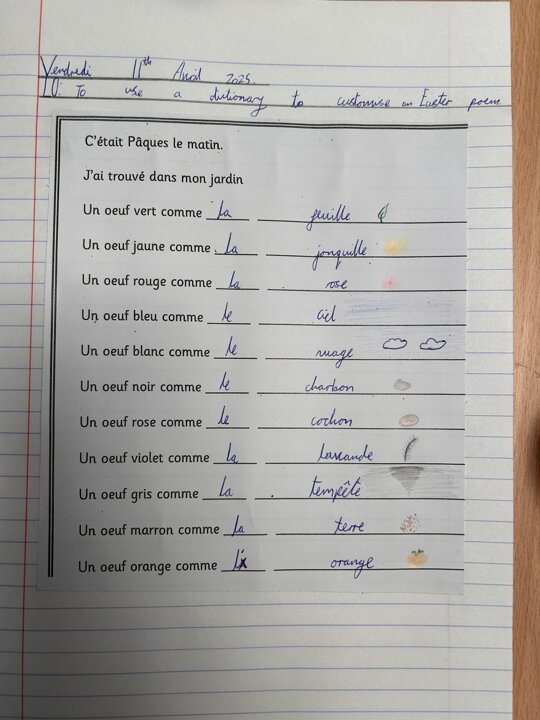 Vendredi 11th Avril 2025.
LO: To use a dictionary to customise an Easter poem.
C'était Pâques le matin.
J'ai trouvé dans mon jardin
Un oeuf vert comme la feuille
Un oeuf jaune comme la jonquille
Un oeuf rouge comme la rose
Un oeuf bleu comme le ciel
Un oeuf blanc comme le nuage
Un oeuf noir comme le charbon
Un oeuf rose comme le cochon
Un oeuf violet comme la lavande
Un oeuf gris comme la tempête
Un oeuf marron comme la terre
Un oeuf orange comme l' orange